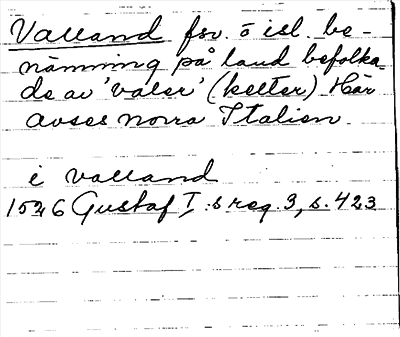 Valland fsv. o isl. be-
nämning på land befolka-
de av 'valer' (kelter) Här
avses norra Italien.
i valland
1526 Gustaf I:s reg. 3, s. 423